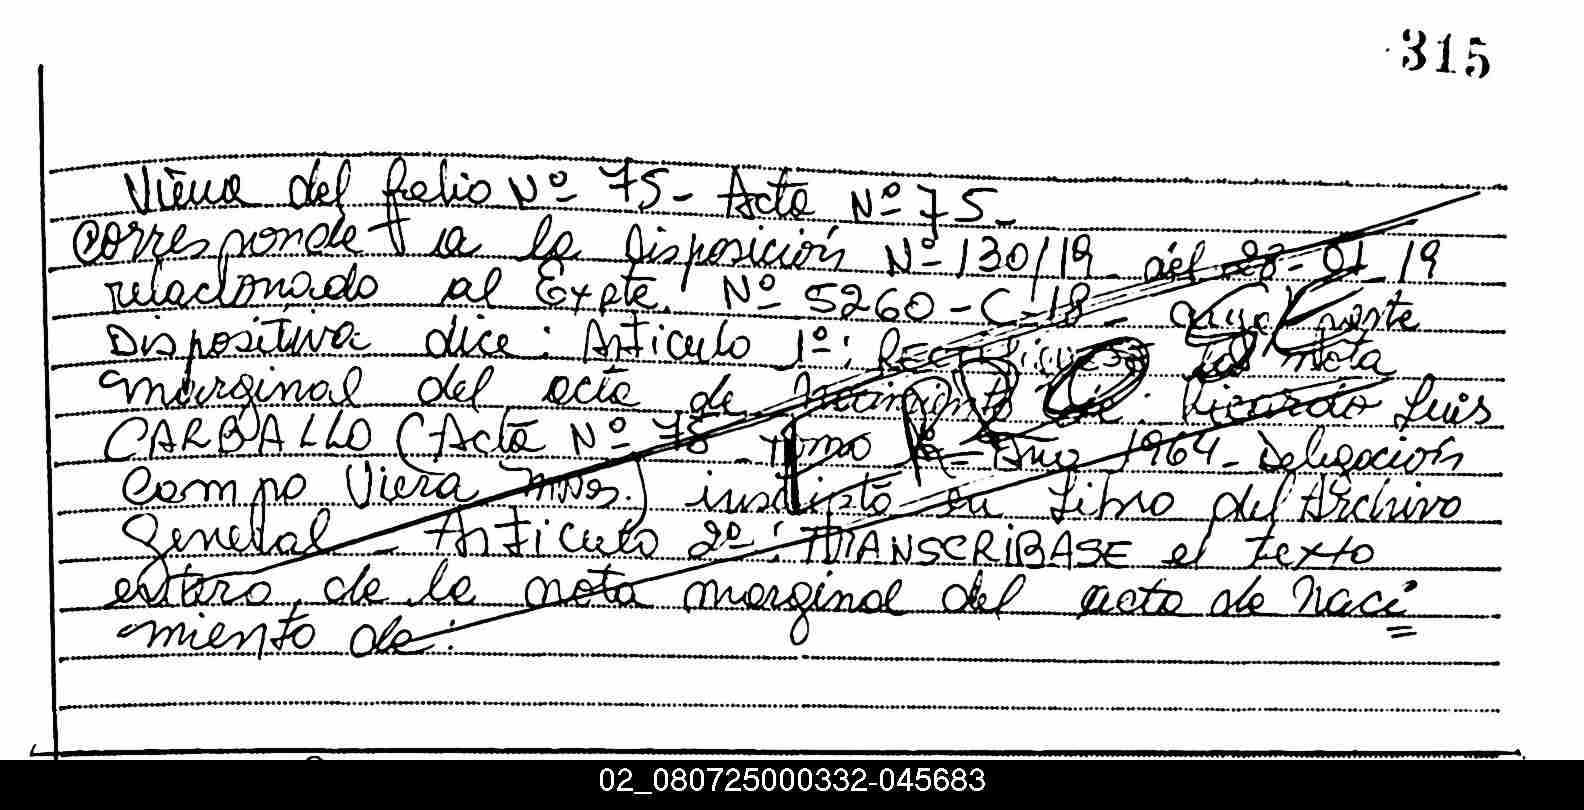 315
Viene del folio Nº 75- Acta Nº 75-
Corresponde a la Disposición Nº 130/19- del 28-01-19
relacionado al Expte. Nº 5260-C-18- cuya parte
Dispositiva dice: Artículo 1º: la nota
marginal del acta de Nacimiento de: Ricardo Luis
CARBALLO (Acta Nº 75 - Tomo Año 1964- Delegación
Campo Viera Mnes.) inscripto en Libro del Archivo
General - Artículo 2º: TRANSCRIBASE el texto
entero de la nota marginal del acta de Naci
miento de:
ERROSE
02_080725000332-045683